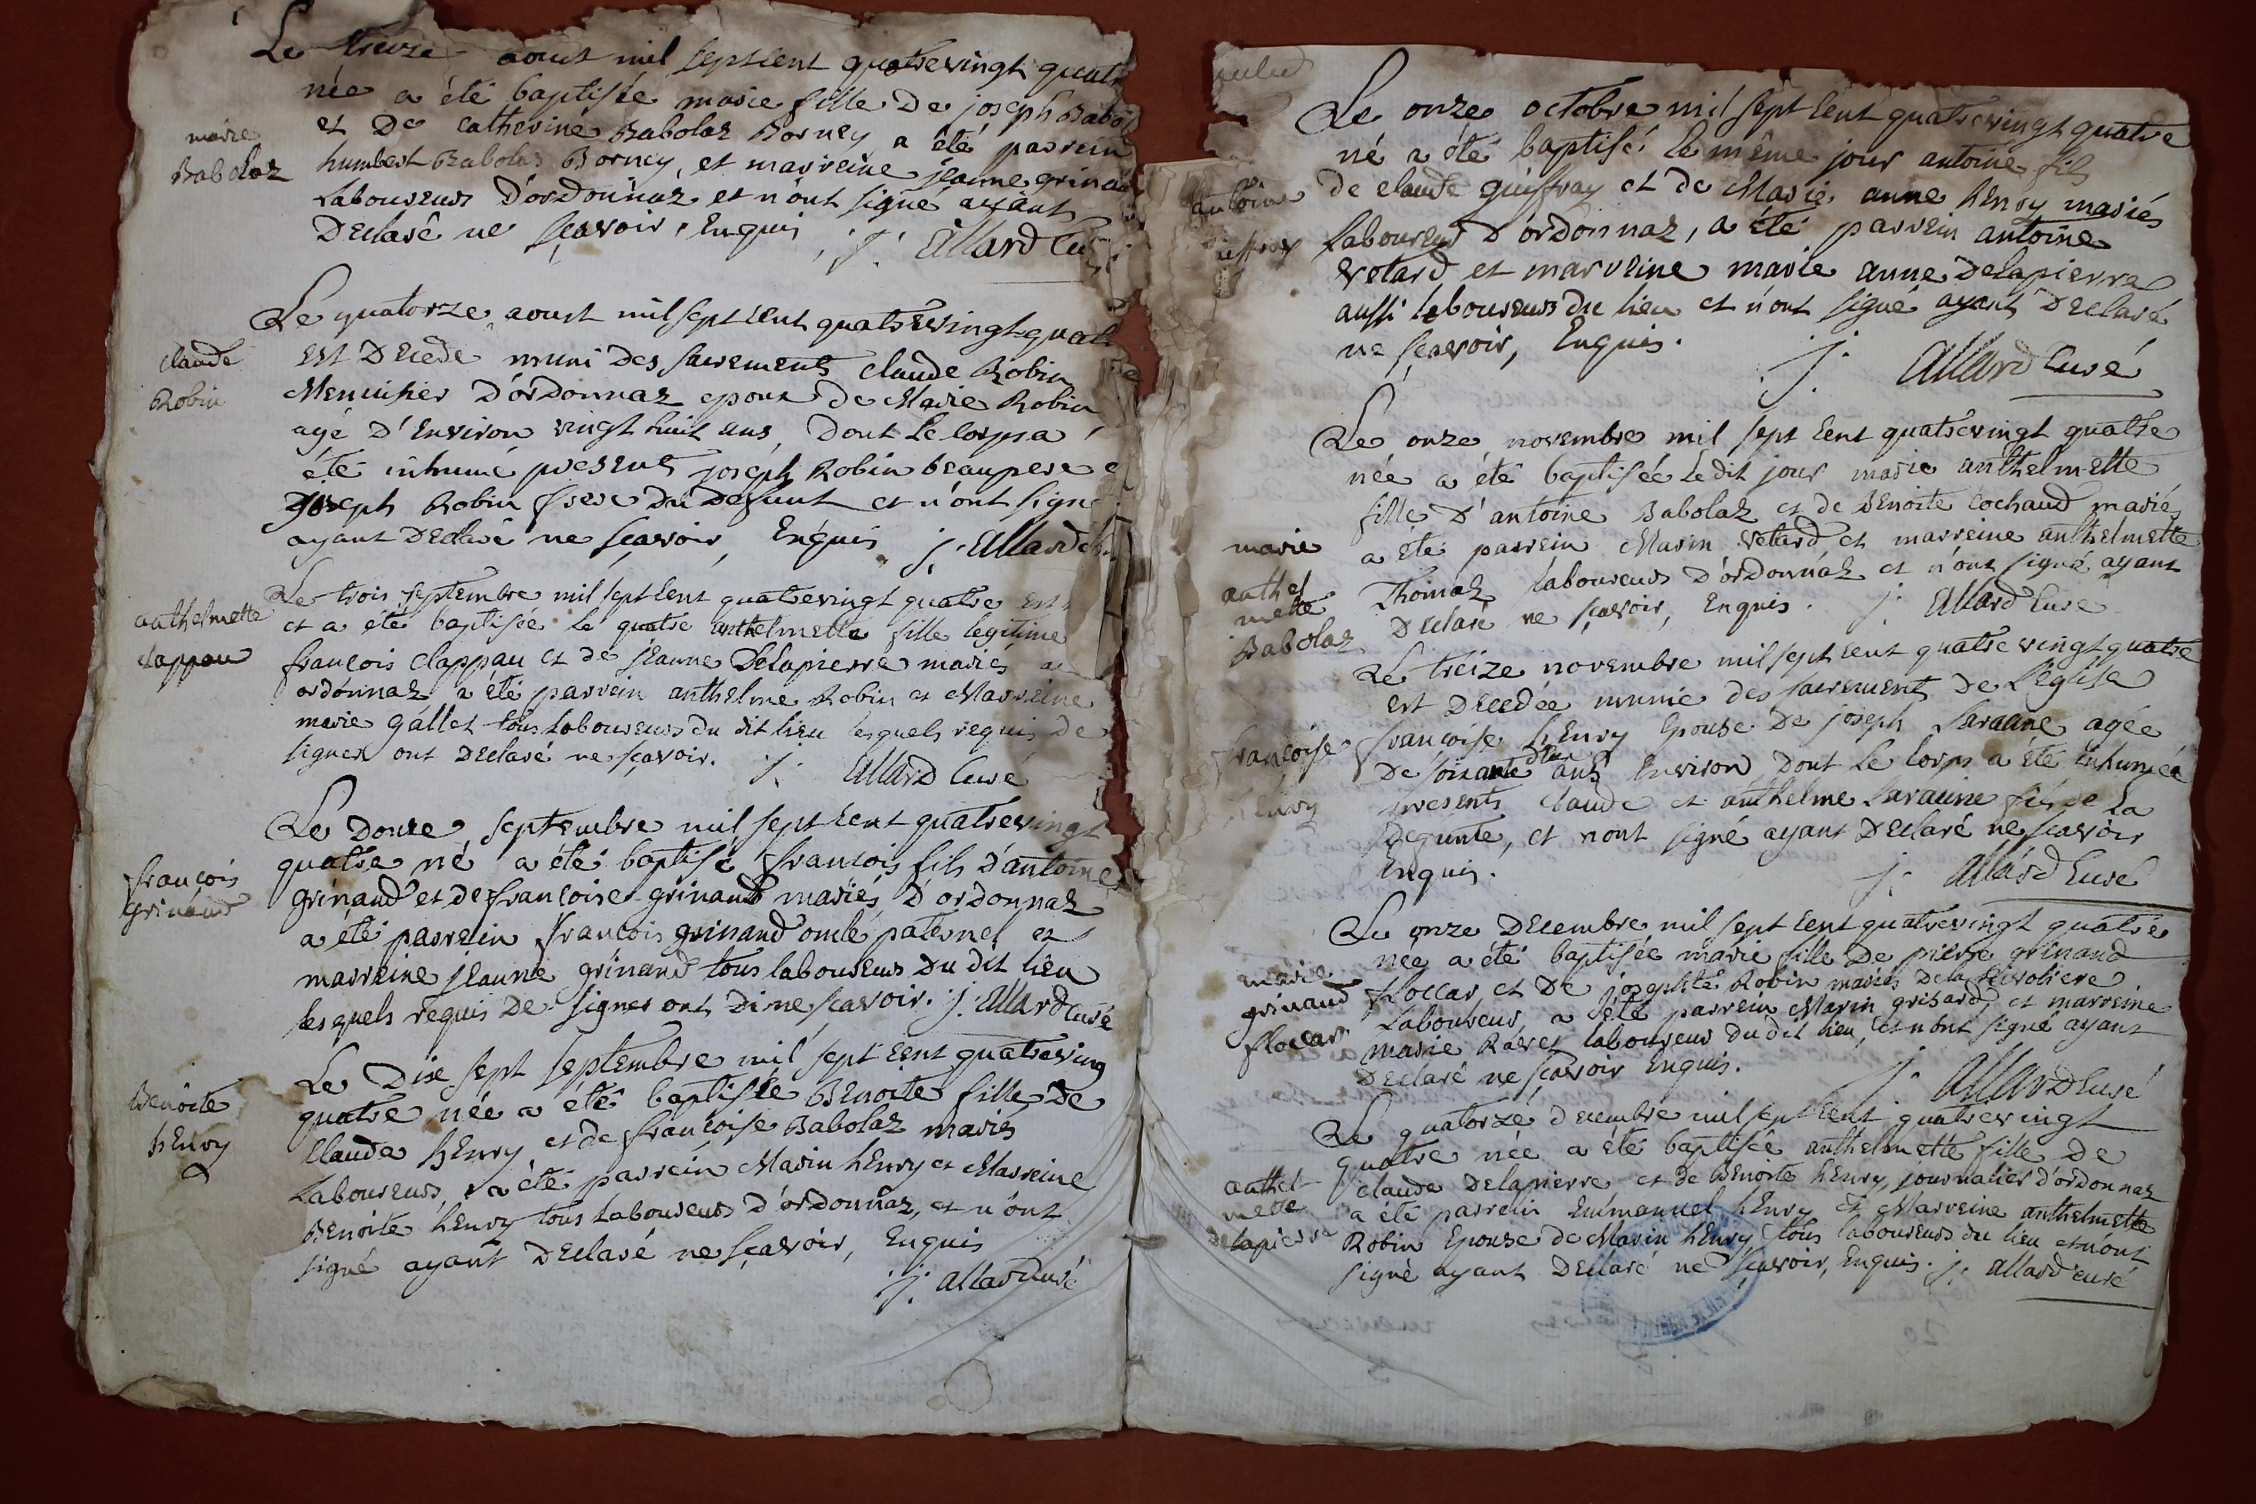 Le treize aoust mil septcent quatrevingt quatr
née a été baptisée marie fille De joseph Babo
et De catherine Babolaz Borney a été parrein
marie
Babolaz
humbert Babolaz Borney, et marreine jeanne grinan
Laboureurs D'ordonnaz et n'ont signé ayant
Declaré ne sçavoir, Enquis j: Allard Cu
Le quatorze aoust mil sept cent quatrevingt quat
claude
Robin
est Decedé muni des sacrements claude Robin
Menuisier D'ordonnaz epoux de Marie Robin
agé D'Environ vingt huit ans, Dont le corps a
été inhumé presents joseph Robin beaupere e
joseph Robin frere du Defunt et n'ont signé
ayant Declaré ne sçavoir, Enquis j: Allard
Le trois septembre mil sept cent quatrevingt quatre est
anthelmette
clappau
et a été baptisée le quatre anthelmette fille legitime
françois clappau et de jeanne Delapierre mariés a
ordonnaz a été parrein anthelme Robin et Marreine
marie gallet tous laboureurs du dit lieu lesquels requis de
signer ont Declaré ne sçavoir. j: Allard Curé
Le Douze septembre mil sept cent quatrevingt
quatre né a été baptisé françois fils d'antoine
françois
grinand
grinand et de françoise grinand mariés D'ordonnaz
a été parrein françois grinand oncle paternel et
marreine jeanne grinand tous laboureurs Du dit lieu
lesquels requis De signer ont Dit ne sçavoir. j: Allard Curé
Le Dix sept septembre mil sept cent quatreving
Benoite
henry
quatre née a été baptisée Benoite fille De
Claude henry et de françoise Babolaz mariés
Laboureurs, a été parrein Marin henry et Marreine
Benoite henry tous Laboureurs d'ordonnaz, et n'ont
signé ayant Declaré ne sçavoir, Enquis
j: allard curé
Le onze octobre mil sept cent quatrevingt quatre
né a été baptisé le même jour antoine fils
antoine
uiffray
de claude guiffray et de Marie anne henry mariés
Laboureurs D'ordonnaz, a été parrein antoine
vetard et marreine marie anne Delapierre
aussi laboureurs du lieu et n'ont signé ayant Declaré
ne sçavoir, Enquis. j: Allard Curé
Le onze novembre mil sept cent quatrevingt quatre
née a été baptisée ledit jour marie anthelmette
fille D'antoine Babolaz et de Benoite cochaud mariés
marie
anthel
mette
Babolaz
a été parrein Marin vetard et marreine anthelmette
Thomaz laboureurs D'ordonnaz et n'ont signé ayant
Declaré ne sçavoir, Enquis. j: Allard Curé
Le treize novembre mil sept cent quatrevingt quatre
est Decedée munie des sacrements De l'eglise
françoise
henry
françoise henry Epouse De joseph Saraine agée
De soixante ans Environ Dont le corps a été inhumée
presents claude et anthelme Saraine fils de la
Defunte, et n'ont signé ayant Declaré ne sçavoir
enquis. j: Allard Curé
Le onze Decembre mil sept cent quatrevingt quatre
née a été baptisée marie fille De pierre grinand
marie
grinand
floccar
floccar et De josephte Robin mariés De la
Laboureurs, a été parrein Marin grisard et marreine
marie Ravet laboureurs du dit lieu, et n'ont signé ayant
Declaré ne sçavoir Enquis. j: Allard Curé
Le quatorze decembre mil sept cent quatrevingt
quatre née a été baptisée anthelmette fille De
anthel
mette
Delapierre
claude Delapierre et de Benoite henry, journalier d'ordonnaz
a été parrein Emmanuel henry et Marreine anthelmette
Robin Epouse de Marin henry tous laboureurs du lieu et n'ont
signé ayant Declaré ne sçavoir, Enquis. j: Allard curé